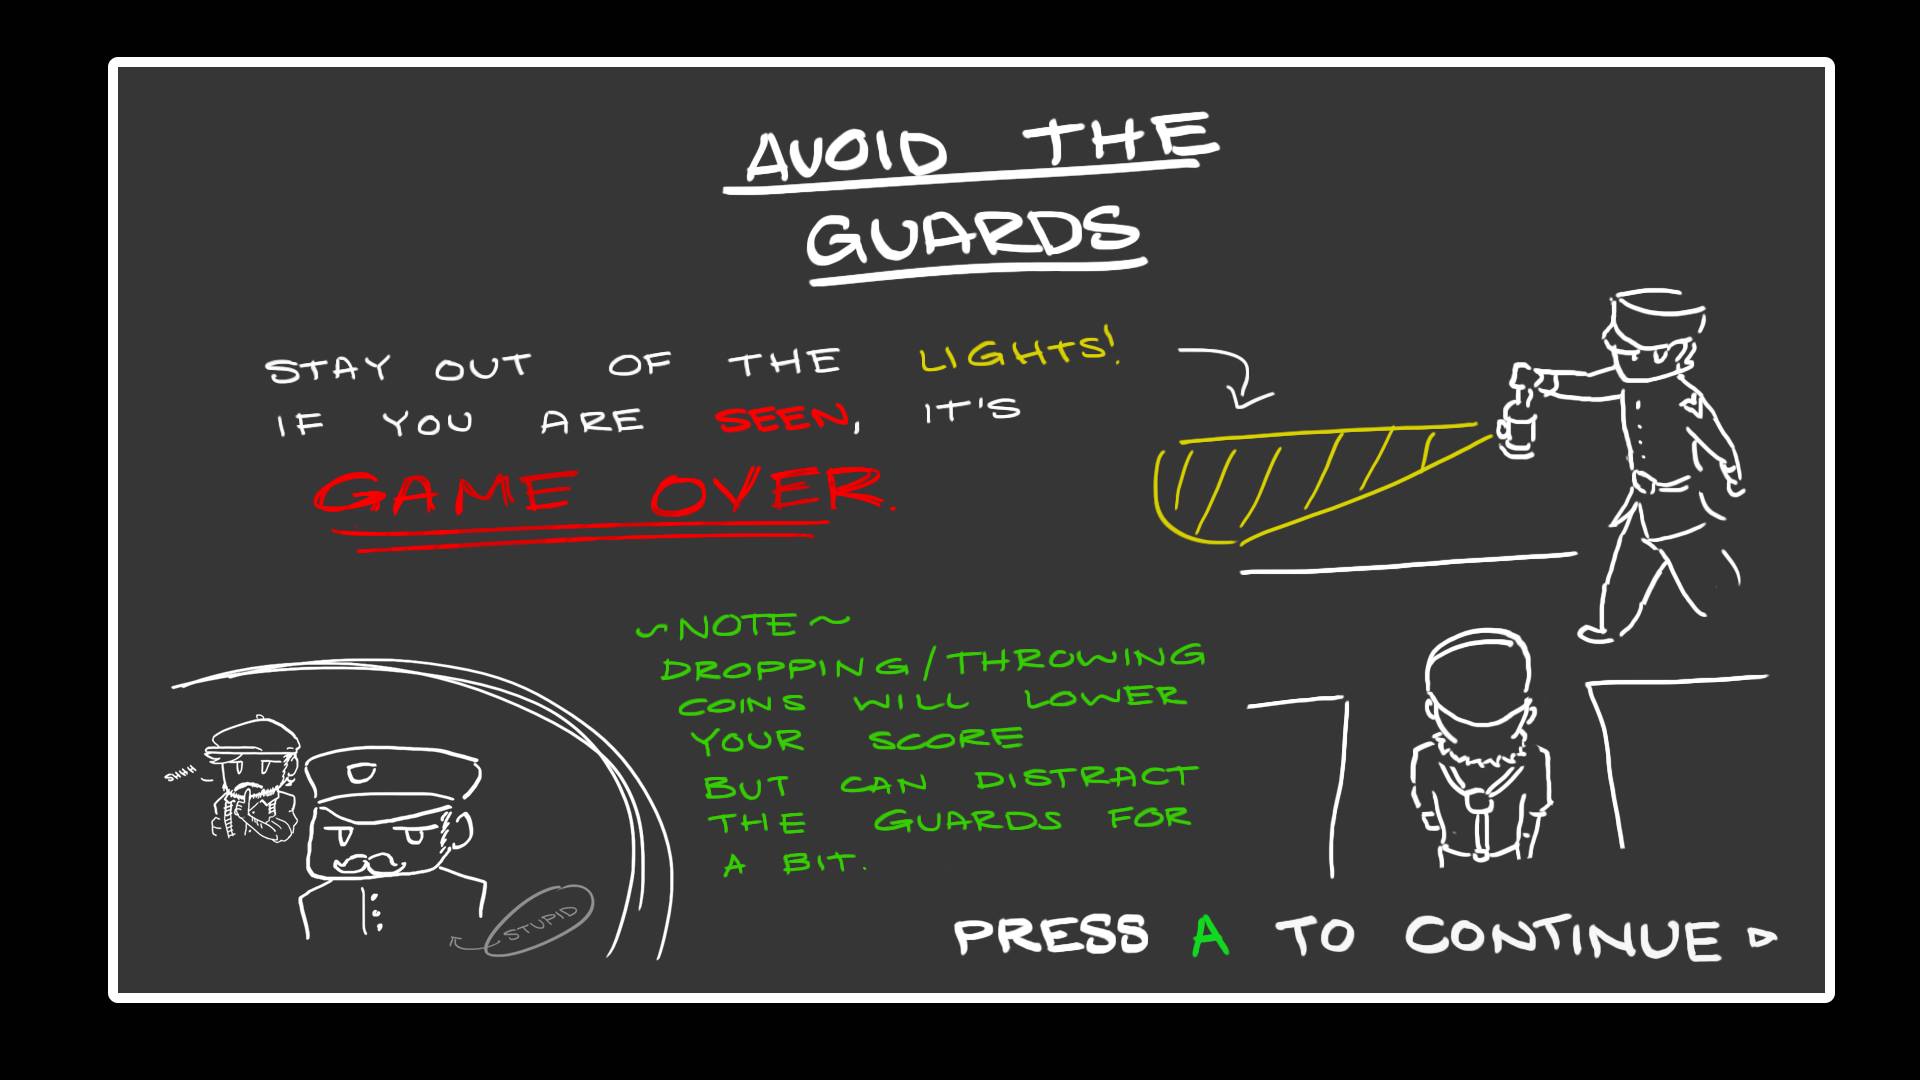 AVOID THE
GUARDS
STAY OUT OF THE LIGHTS!
IF YOU ARE SEEN, IT'S
GAME OVER.
~NOTE~
DROPPING/THROWING
COINS WILL LOWER
YOUR SCORE
BUT CAN DISTRACT
THE GUARDS FOR
A BIT.
SHHH
STUPID
PRESS A TO CONTINUE